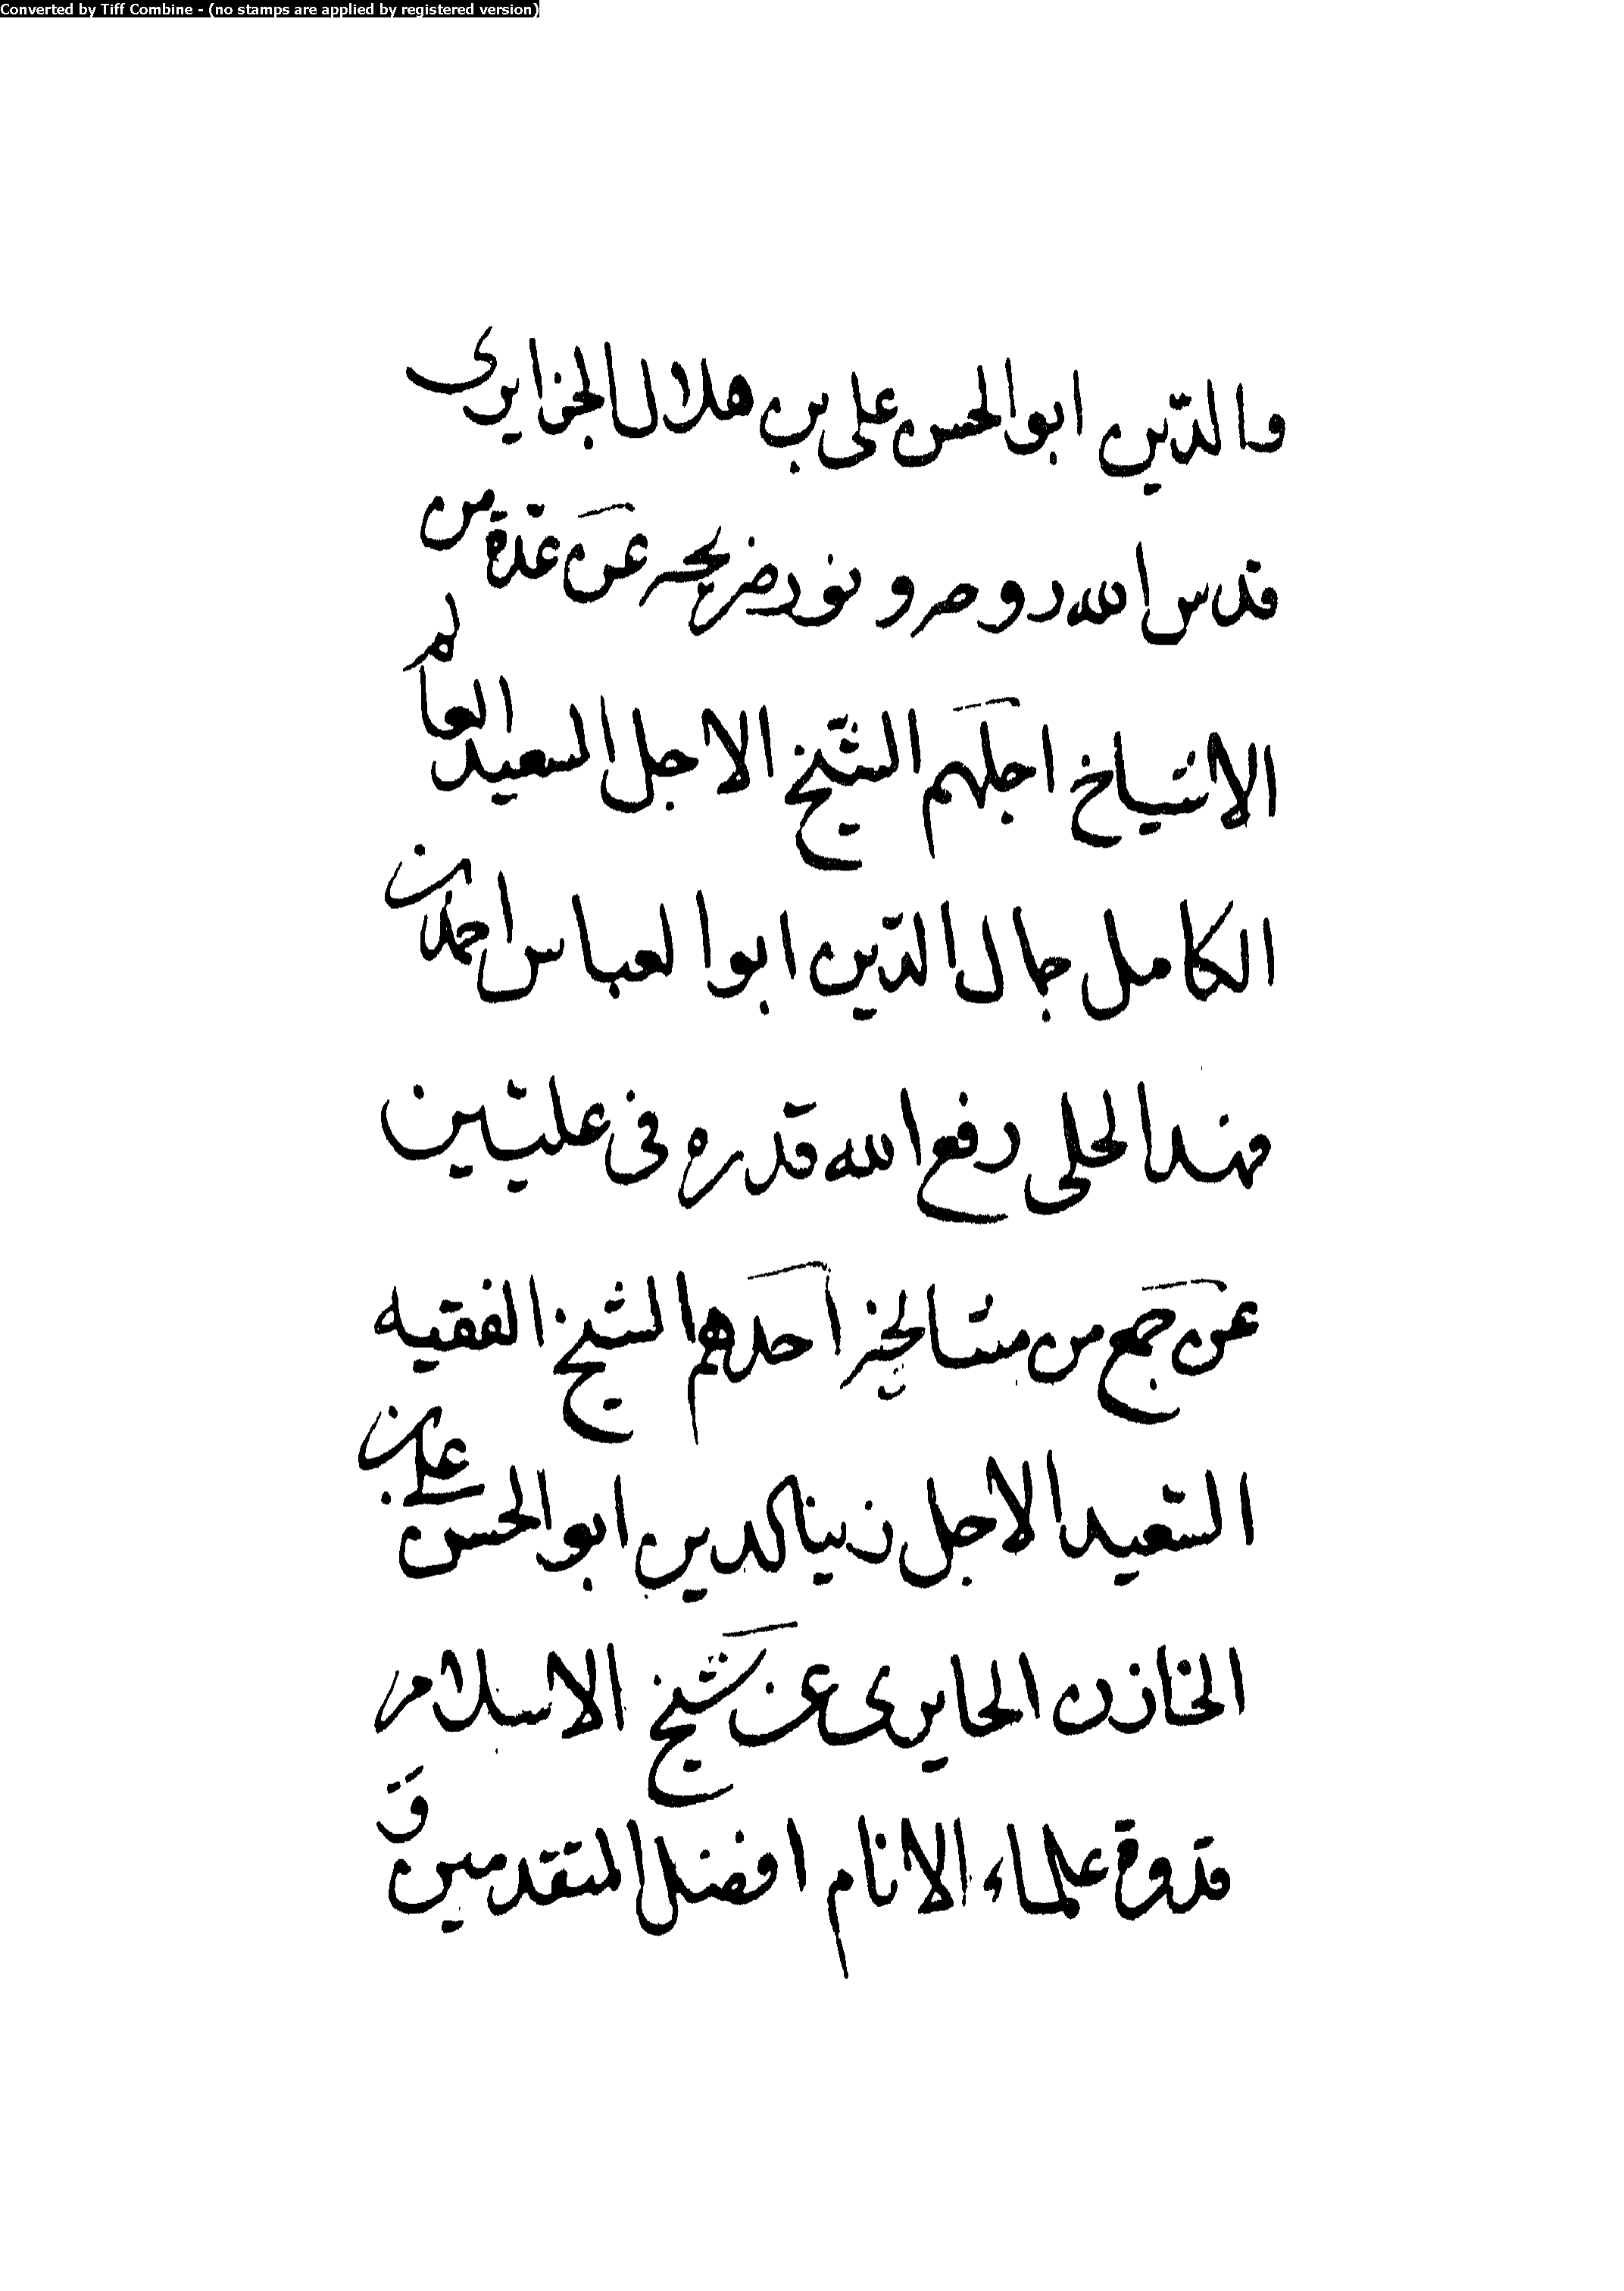 Converted by Tiff Combine - (no stamps are applied by registered version)
والدّين ابوالحسن على بن هلال الجزايرى
قدس الله روحه و نور ضريحه عن عدّة من
الاشياخ اجلهم الشّيخ الاجل السعيد العالم
الكامل جمال الدّين ابوالعباس احمد بن
فهد الحلى رفع الله قدره فى علّيّين
عن جمع من مشايخه احدهم الشيخ الفقيه
السّعيد الاجل زين الدين ابوالحسن على بن
الخازن الحايرى عن شيخ الاسلام
قدوة علماء الانام افضل المتقدمين و